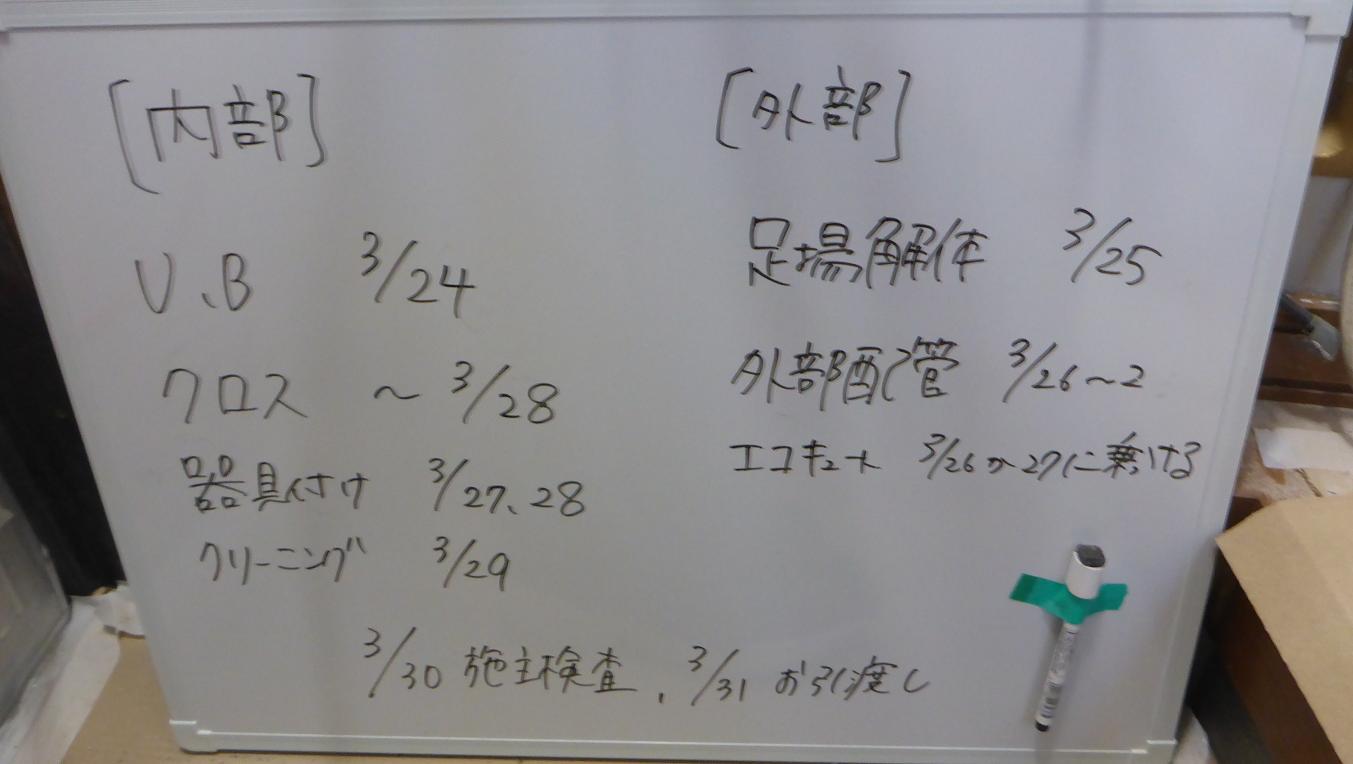 [内部]
U、B 3/24
クロス ～3/28
器具付け 3/27、28
クリーニング 3/29
[外部]
足場解体 3/25
外部配管 3/26～2
エコキュート 3/26か27に乗ける
3/30 施主検査、3/31 お引渡し